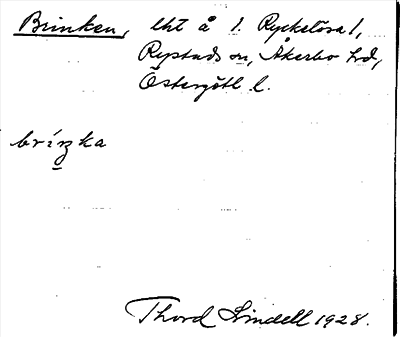 Brinken, lht å 1. Ryckelösa 1,
Rystads sn, Åkerbo hd,
Östergötl l.
bríŋka
Thord Lindell 1928.